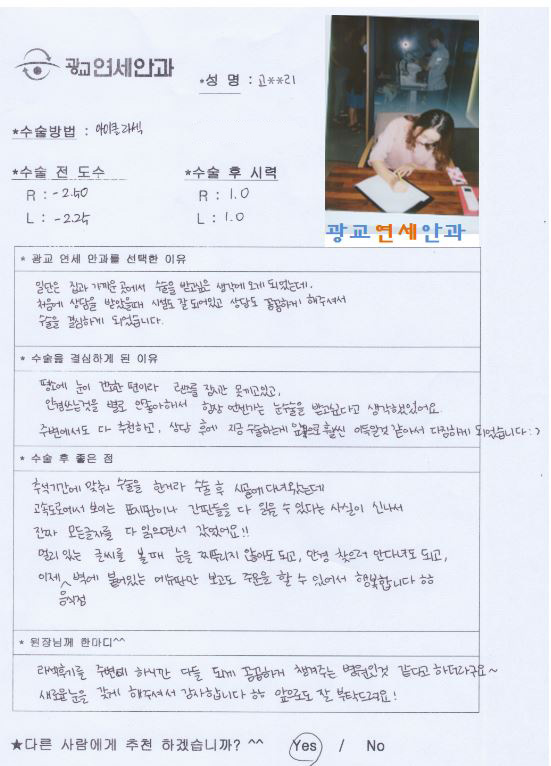 광교연세안과
*성 명 : 고**리
*수술방법 : 아이클라섹
*수술 전 도수
*수술 후 시력
R : -2.50
R : 1.0
L : -2.25
L : 1.0
광교연세안과
* 광교 연세 안과를 선택한 이유
일단은 집과 가까운 곳에서 수술을 받고싶은 생각에 오게 되었는데.
처음에 상담을 받았을때 시설도 잘 되어있고 상담도 꼼꼼하게 해주셔서
수술을 결심하게 되었습니다.
* 수술을 결심하게 된 이유
평소에 눈이 건조한 편이라 렌즈를 잠시만 못끼고있고,
안경쓰는것을 별로 안좋아해서 항상 언젠가는 눈수술을 받고싶다고 생각했었어요.
주변에서도 다 추천하고, 상담 후에 지금 수술하는게 앞으로 훨씬 이득일것 같아서 다짐하게 되었습니다 :)
* 수술 후 좋은 점
추석기간에 맞춰 수술을 한거라 수술 후 시골에 다녀왔는데
고속도로에서 보이는 표지판이나 간판들을 다 읽을 수 있다는 사실이 신나서
진짜 모든글자를 다 읽으면서 갔었어요!!
멀리 있는 글씨를 볼 때 눈을 찌푸리지 않아도 되고, 안경 찾으러 안다녀도 되고,
이제 음식점 벽에 붙어있는 메뉴판만 보고도 주문을 할 수 있어서 행복합니다 ㅎㅎ
* 원장님께 한마디^^
라섹후기를 주변에 하니깐 다들 되게 꼼꼼하게 챙겨주는 병원인것 같다고 하더라구요~
새로운 눈을 갖게 해주셔서 감사합니다 ㅎㅎ 앞으로도 잘 부탁드려요!
★다른 사람에게 추천 하겠습니까? ^^ Yes / No